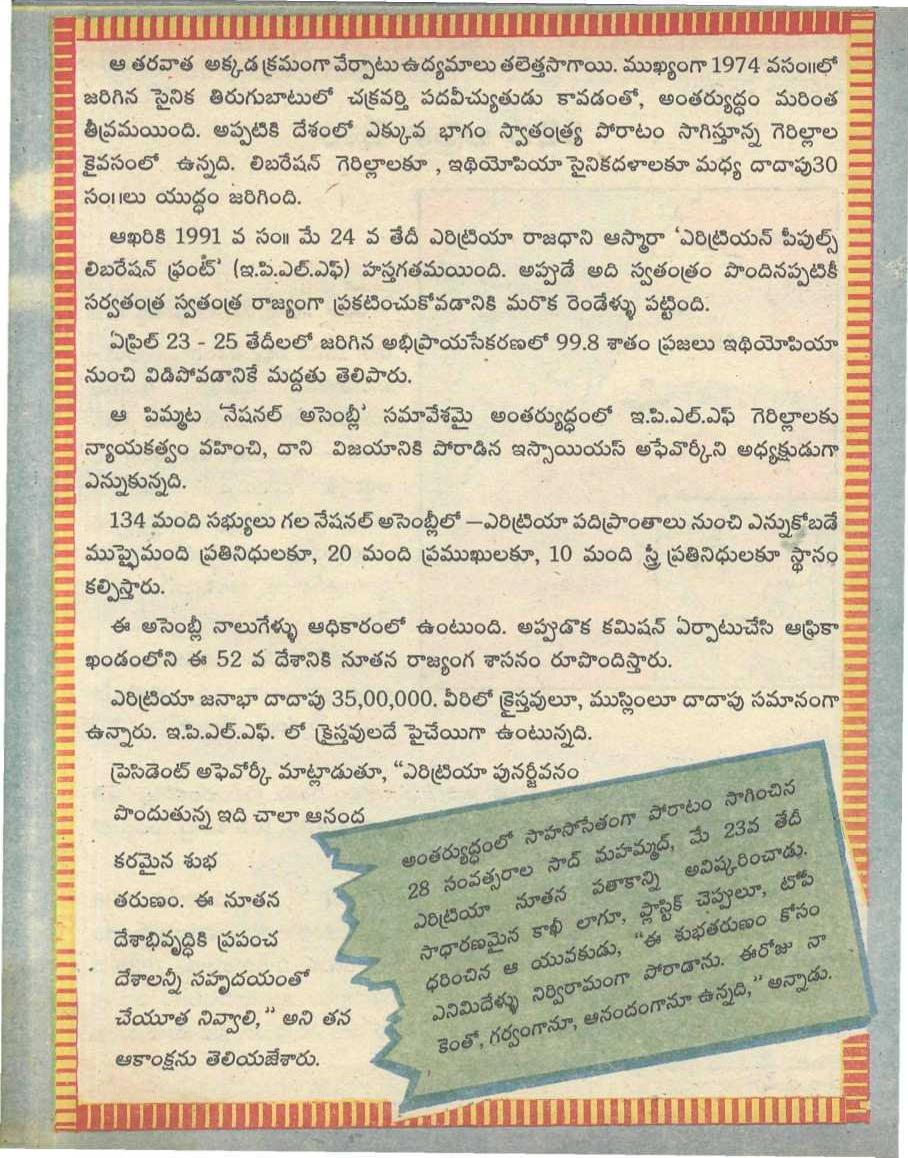 ఆ తరవాత అక్కడ క్రమంగా వేర్పాటు ఉద్యమాలు తలెత్తసాగాయి. ముఖ్యంగా 1974 వసం॥లో
జరిగిన సైనిక తిరుగుబాటులో చక్రవర్తి పదవీచ్యుతుడు కావడంతో, అంతర్యుద్ధం మరింత
తీవ్రమయింది. అప్పటికి దేశంలో ఎక్కువ భాగం స్వాతంత్ర్య పోరాటం సాగిస్తూన్న గెరిల్లాల
కైవసంలో ఉన్నది. లిబరేషన్ గెరిల్లాలకూ , ఇథియోపియా సైనికదళాలకూ మధ్య దాదాపు30
సం॥లు యుద్ధం జరిగింది.
ఆఖరికి 1991 వ సం॥ మే 24 వ తేదీ ఎరిట్రియా రాజధాని ఆస్మారా ‘ఎరిట్రియన్ పీపుల్స్
లిబరేషన్ ఫ్రంట్’ (ఇ.పి.ఎల్.ఎఫ్) హస్తగతమయింది. అప్పుడే అది స్వతంత్రం పొందినప్పటికీ
సర్వతంత్ర స్వతంత్ర రాజ్యంగా ప్రకటించుకోవడానికి మరొక రెండేళ్ళు పట్టింది.
ఏప్రిల్ 23 - 25 తేదీలలో జరిగిన అభిప్రాయసేకరణలో 99.8 శాతం ప్రజలు ఇథియోపియా
నుంచి విడిపోవడానికే మద్దతు తెలిపారు.
ఆ పిమ్మట ‘నేషనల్ అసెంబ్లీ’ సమావేశమై అంతర్యుద్ధంలో ఇ.పి.ఎల్.ఎఫ్ గెరిల్లాలకు
న్యాయకత్వం వహించి, దాని విజయానికి పోరాడిన ఇస్సాయియస్ అఫేవొర్కీని అధ్యక్షుడుగా
ఎన్నుకున్నది.
134 మంది సభ్యులు గల నేషనల్ అసెంబ్లీలో —ఎరిట్రియా పదిప్రాంతాలు నుంచి ఎన్నుకోబడే
ముప్పైమంది ప్రతినిధులకూ, 20 మంది ప్రముఖులకూ, 10 మంది స్త్రీ ప్రతినిధులకూ స్థానం
కల్పిస్తారు.
ఈ అసెంబ్లీ నాలుగేళ్ళు ఆధికారంలో ఉంటుంది. అప్పుడొక కమిషన్ ఏర్పాటుచేసి ఆఫ్రికా
ఖండంలోని ఈ 52 వ దేశానికి నూతన రాజ్యంగ శాసనం రూపొందిస్తారు.
ఎరిట్రియా జనాభా దాదాపు 35,00,000. వీరిలో క్రైస్తవులూ, ముస్లింలూ దాదాపు సమానంగా
ఉన్నారు. ఇ.పి.ఎల్.ఎఫ్. లో క్రైస్తవులదే పైచేయిగా ఉంటున్నది.
ప్రెసిడెంట్ అఫెవోర్కీ మాట్లాడుతూ, “ఎరిట్రియా పునర్జీవనం
పొందుతున్న ఇది చాలా ఆనంద
కరమైన శుభ
తరుణం. ఈ నూతన
దేశాభివృద్ధికి ప్రపంచ
దేశాలన్నీ సహృదయంతో
చేయూత నివ్వాలి,” అని తన
ఆకాంక్షను తెలియజేశారు.
అంతర్యుద్ధంలో సాహసోపేతంగా పోరాటం సాగించిన
28 సంవత్సరాల సాద్ మహమ్మద్, మే 23వ తేదీ
ఎరిట్రియా నూతన పతాకాన్ని అవిష్కరించాడు.
సాధారణమైన కాఖీ లాగూ, ప్లాస్టిక్ చెప్పులూ, టోపీ
ధరించిన ఆ యువకుడు, “ఈ శుభతరుణం కోసం
ఎనిమిదేళ్ళు నిర్విరామంగా పోరాడాను. ఈరోజు నా
కెంతో, గర్వంగానూ, ఆనందంగానూ ఉన్నది,” అన్నాడు.